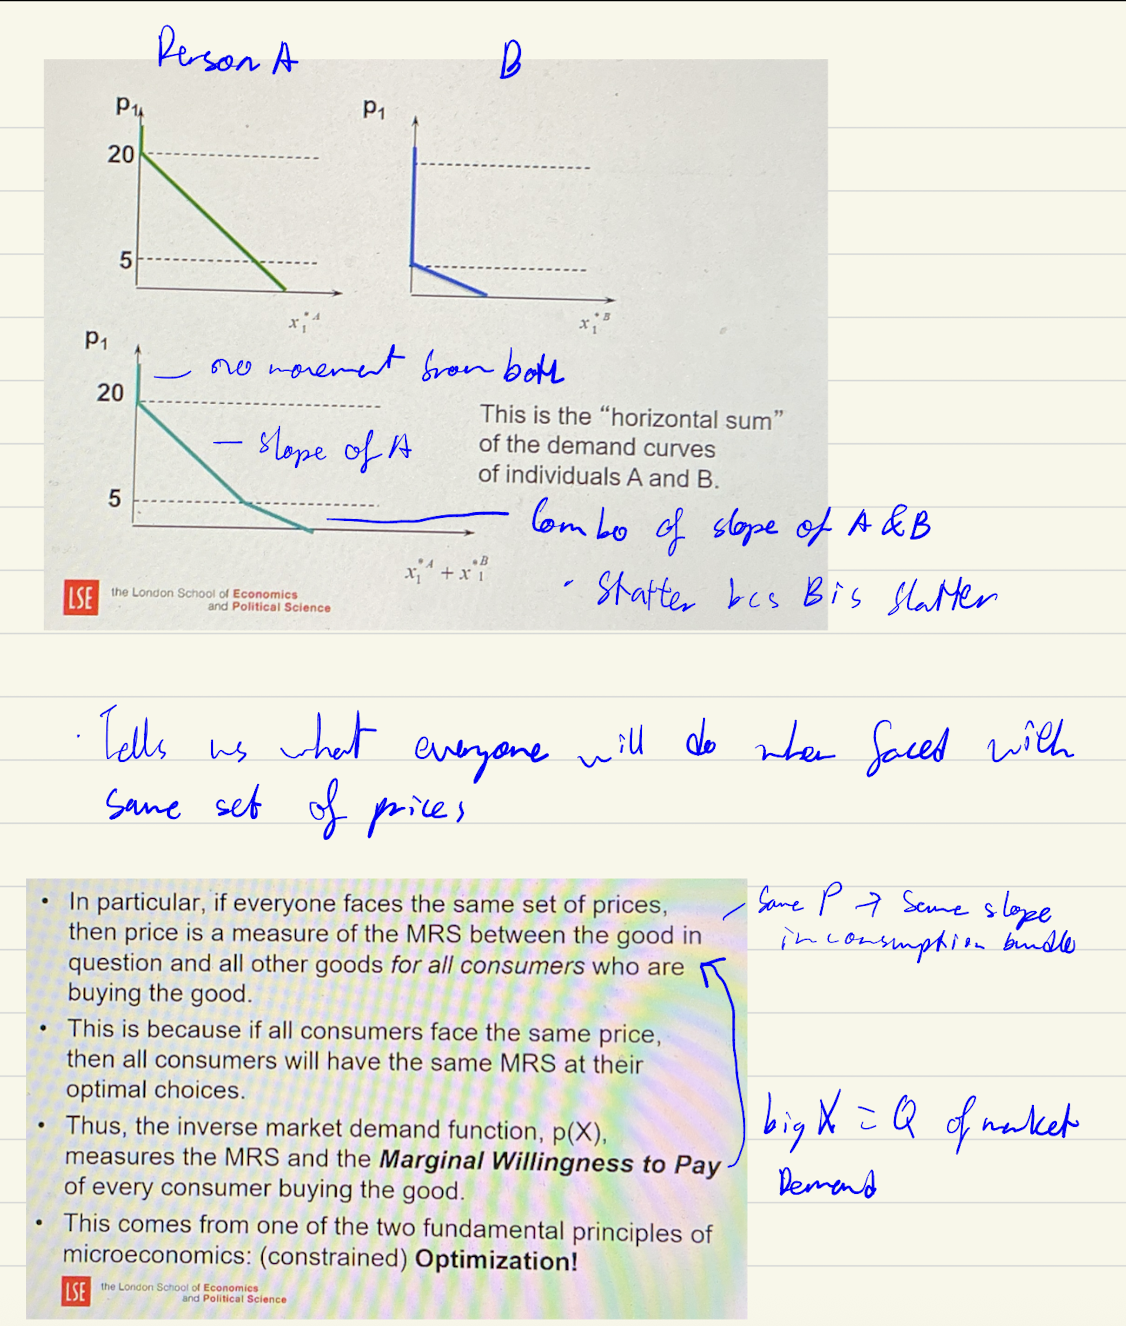 Person A B
p₁ p₁
20
5
x₁*ᴬ x₁*ᴮ
p₁
— no movement from both
20
This is the “horizontal sum”
— slope of A
of the demand curves
of individuals A and B.
5
Combo of slope of A & B
x₁*ᴬ + x₁*ᴮ
· flatter bcs B is flatter
LSE the London School of Economics
and Political Science
· Tells us what everyone will do when faced with
same set of prices
• In particular, if everyone faces the same set of prices,
then price is a measure of the MRS between the good in
question and all other goods for all consumers who are
buying the good.
– Same P → Same slope
in consumption bundle
• This is because if all consumers face the same price,
then all consumers will have the same MRS at their
optimal choices.
• Thus, the inverse market demand function, p(X),
measures the MRS and the Marginal Willingness to Pay
of every consumer buying the good.
big X = Q of market
Demand
• This comes from one of the two fundamental principles of
microeconomics: (constrained) Optimization!
LSE the London School of Economics
and Political Science